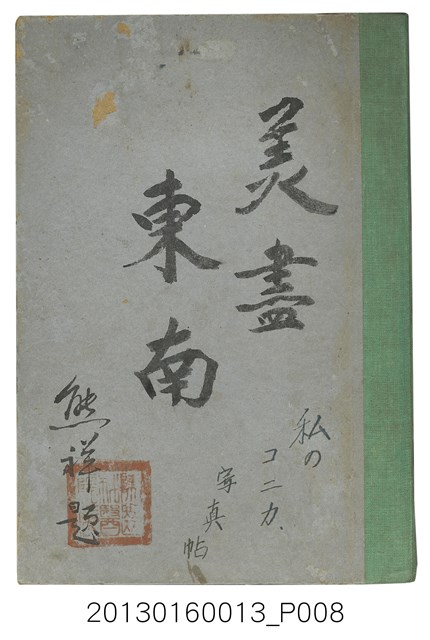 美盡
東南
熊祥題
私の
コニカ、
写真
帖
20130160013_P008